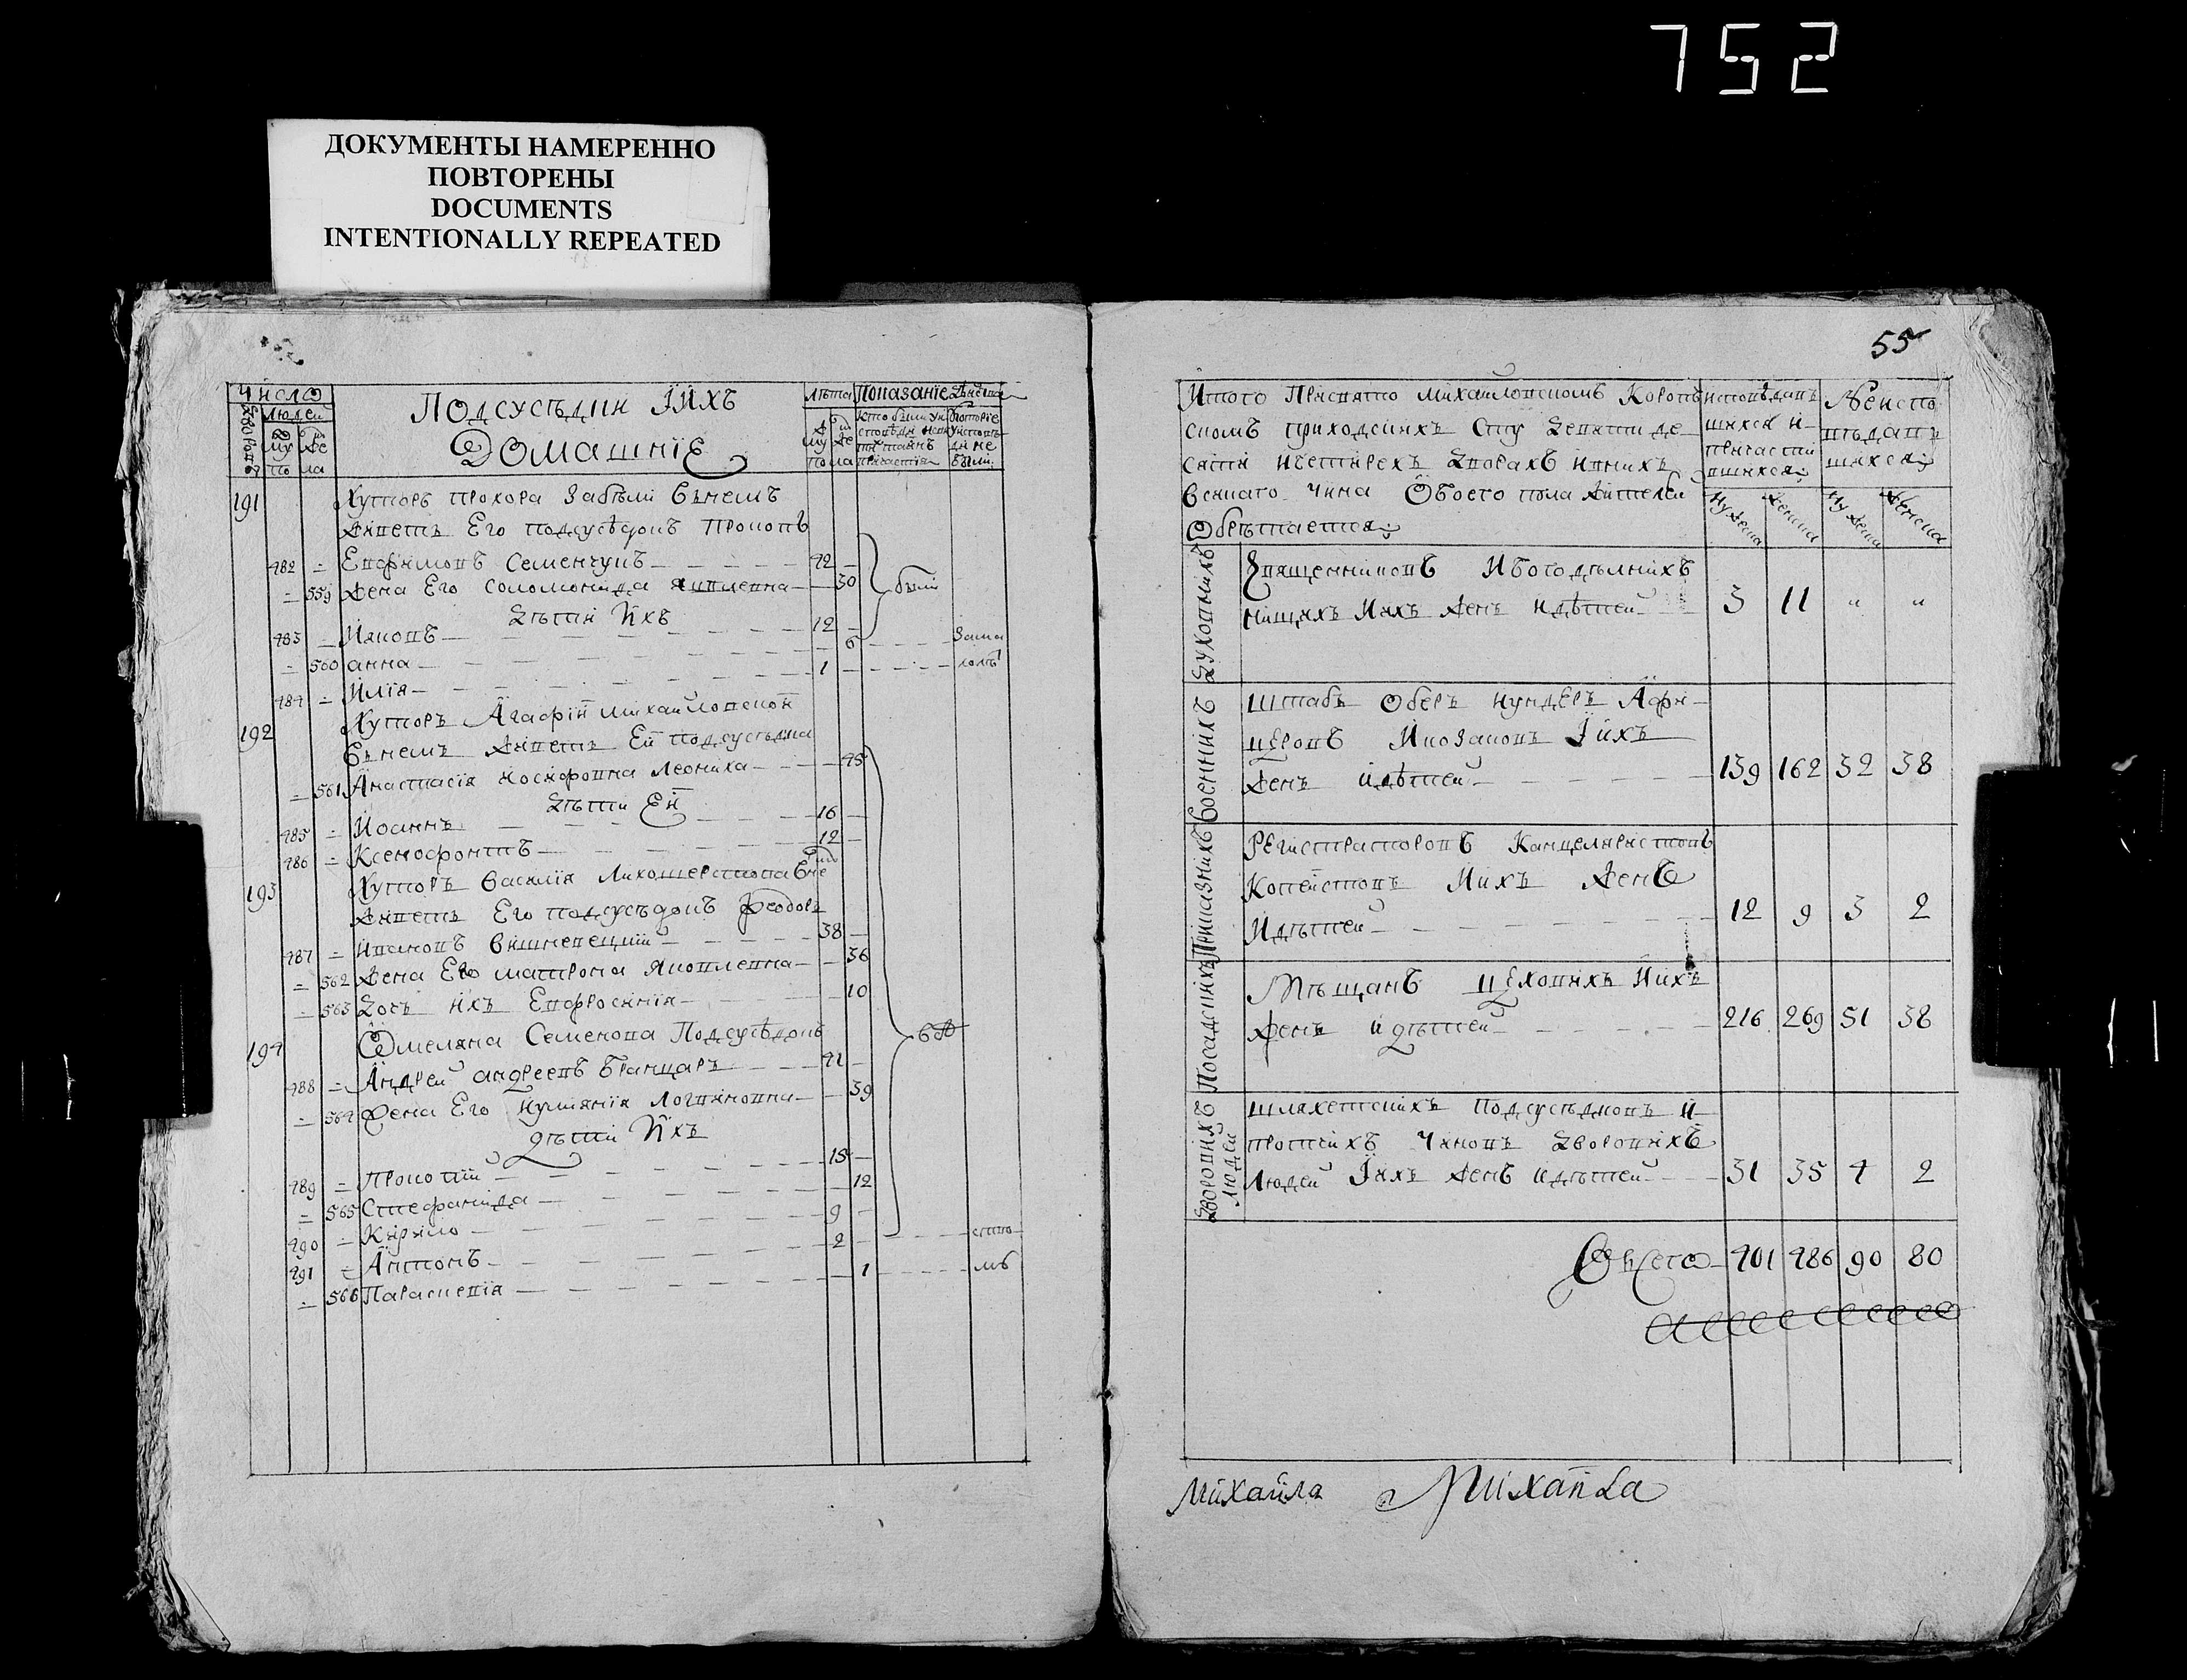 752
ДОКУМЕНТЫ НАМЕРЕННО
ПОВТОРЕНЫ
DOCUMENTS
INTENTIONALLY REPEATED
Число
Людей
Подсусѣдки Iихъ
Домашніе
лѣта
Показанiе
191 Хуторъ Прохора Забѣли Внемъ
Живетъ Его подсусѣдокъ Прокопъ
482 Ефимовъ Семенчукъ 42
559 Жена Его Соломонида Яковлевна 30
были
Дѣти Ихъ
483 Яковъ 12
560 анна 6 Зама
484 Илїя 1 лолѣт
192 Хуторъ Агафїи Михайловской
Внемъ Живетъ Ей подсусѣдка
561 Анастасїя Ксенофонна Леониха 45
Дѣти Ей
485 Иоаннъ 16
486 Ксенофонтъ 12
193 Хуторъ Василїя Лихошерстова Вне
Живетъ Его подсусѣдокъ Феодоръ
487 Ивановъ Вишневецкий 38
562 Жена Его матрона Яковлевна 36
563 Дочъ Ихъ Евфросинїя 10
194 Омеляна Семенова Подсусѣдокъ
488 Андрей андреевъ Бранцаръ 41
564 Жена Его Иулианїя Логвиновна 39
дѣти Ихъ
489 Прокопїй 15
565 Стефанида 12
490 Кирило 9
491 Антонъ 2
566 Параскевїя 1
55
Итого Присвято Михайловскомъ Короп
скомъ приходскихъ Сту Девяти де
сяти Ичетирехъ Дворахъ Ивнихъ
Всякаго Чина Обоего пола Жителей
Обрѣтается
исповѣдав
шихся И
причасти
вшихся
Неиспо
вѣдав
шихся
Мужеска Женска Мужеска Женска
Духовнихъ Священниковъ Ибогодѣлнихъ
нищихъ Ихъ Женъ Идѣтей 3 11 " "
Военнихъ Штабъ Оберъ Иундеръ Афи
церовъ Икозаковъ Iихъ
Женъ идѣтей 139 162 32 38
Приказнихъ Регистраторовъ Канцеляристовъ
Копеистовъ Ихъ Женъ
Идѣтей 12 9 3 2
Посадскихъ Мѣщанъ цеховихъ Ихъ
Женъ и дѣтей 216 269 51 38
Дворовихъ людей Шляхетскихъ Подсусѣдковъ И
протчихъ Чиновъ Дворовихъ
Людей Iихъ Женъ Идѣтей 31 35 4 2
Всего 401 486 90 80
Михайла Михайла